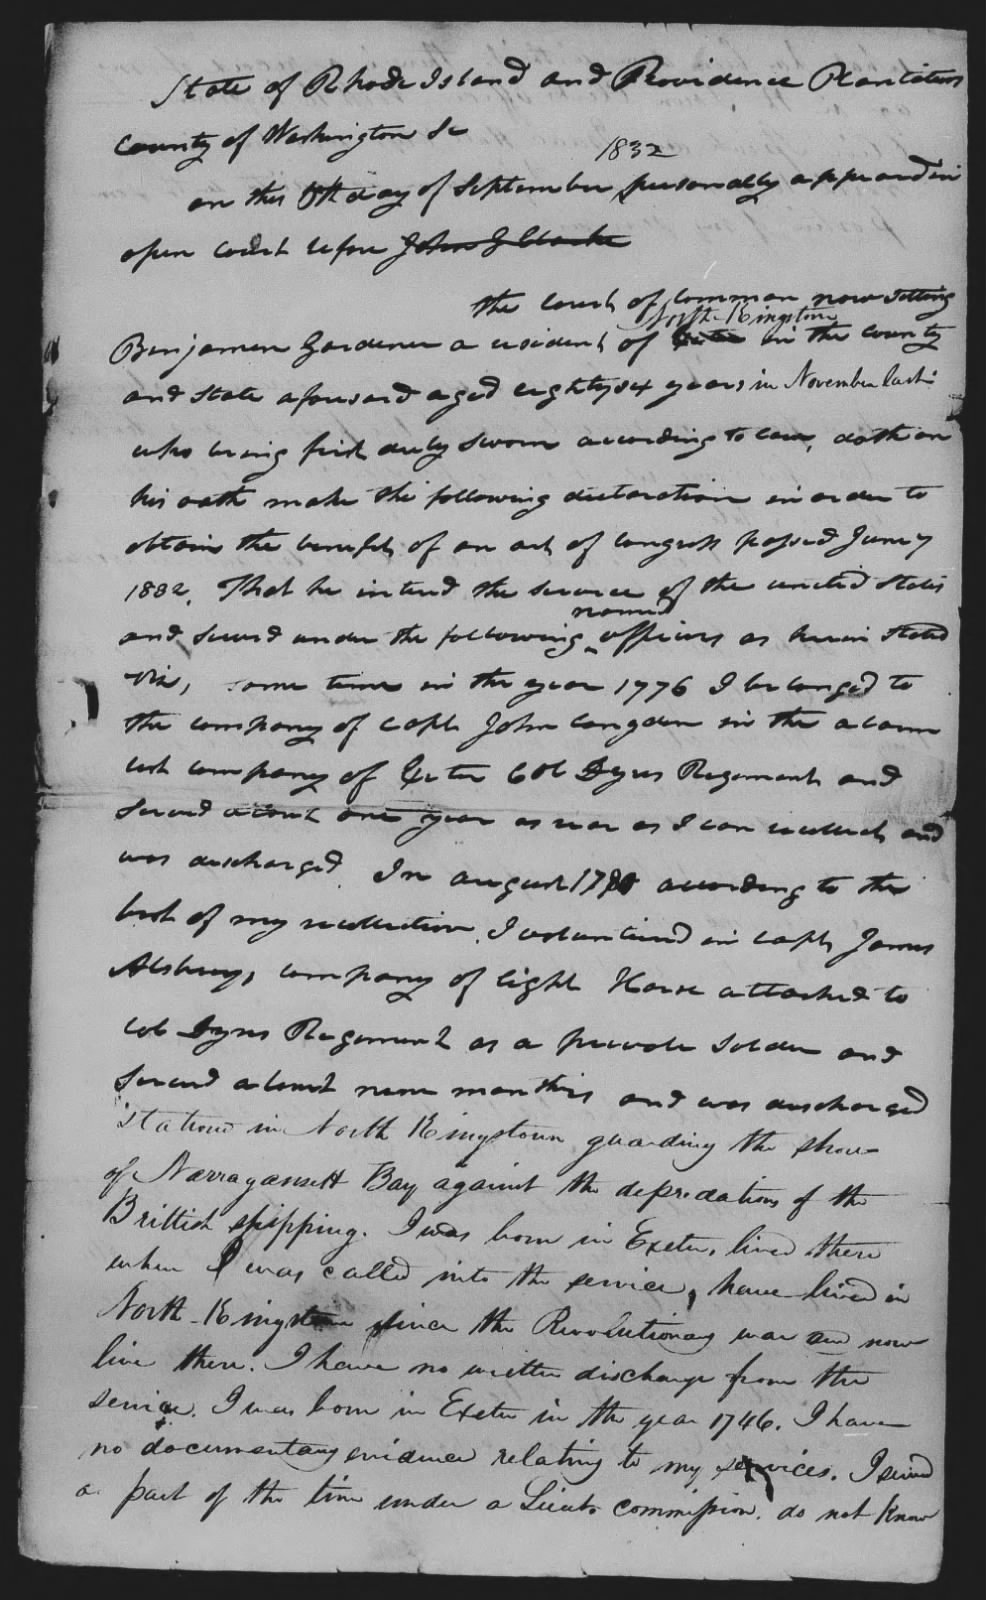 State of Rhode Island and Providence Plantations
County of Washington Sc
1832
on this 8th day of September personally appeared in
open court before John G Clarke
the court of common now sitting
North-Kingstown
Benjamen Gardener a resident of Exeter in the county
and State aforesaid aged eighty six years in November last
who being first duly sworn according to law, doth on
his oath make the following declaration in order to
obtain the benefit of an act of congress passed June 7
1832. That he entered the service of the united states
named
and served under the following officers as herein stated
viz, some time in the year 1776 I belonged to
the company of capt John Langden in the alarm
list company of Exeter Col Dyers Regement and
served about one year as near as I can recollect and
was discharged. In august 17 according to the
best of my recollection. I volunteered in capt James
company of light Horse attached to
Col Dyres Regement as a private Solder and
served about nine months and was discharged
stationed in North Kingstown guarding the shore
of Narragansett Bay against the depredations of the
Brittish shipping. I was born in Exeter, lived there
when I was called into the service, have lived in
North-Kingstown since the Revolutionary war and now
live there. I have no written discharge from the
service. I was born in Exeter in the year 1746. I have
no documentary evidence relating to my services. I served
a part of the time under a Lieuts commission. do not know